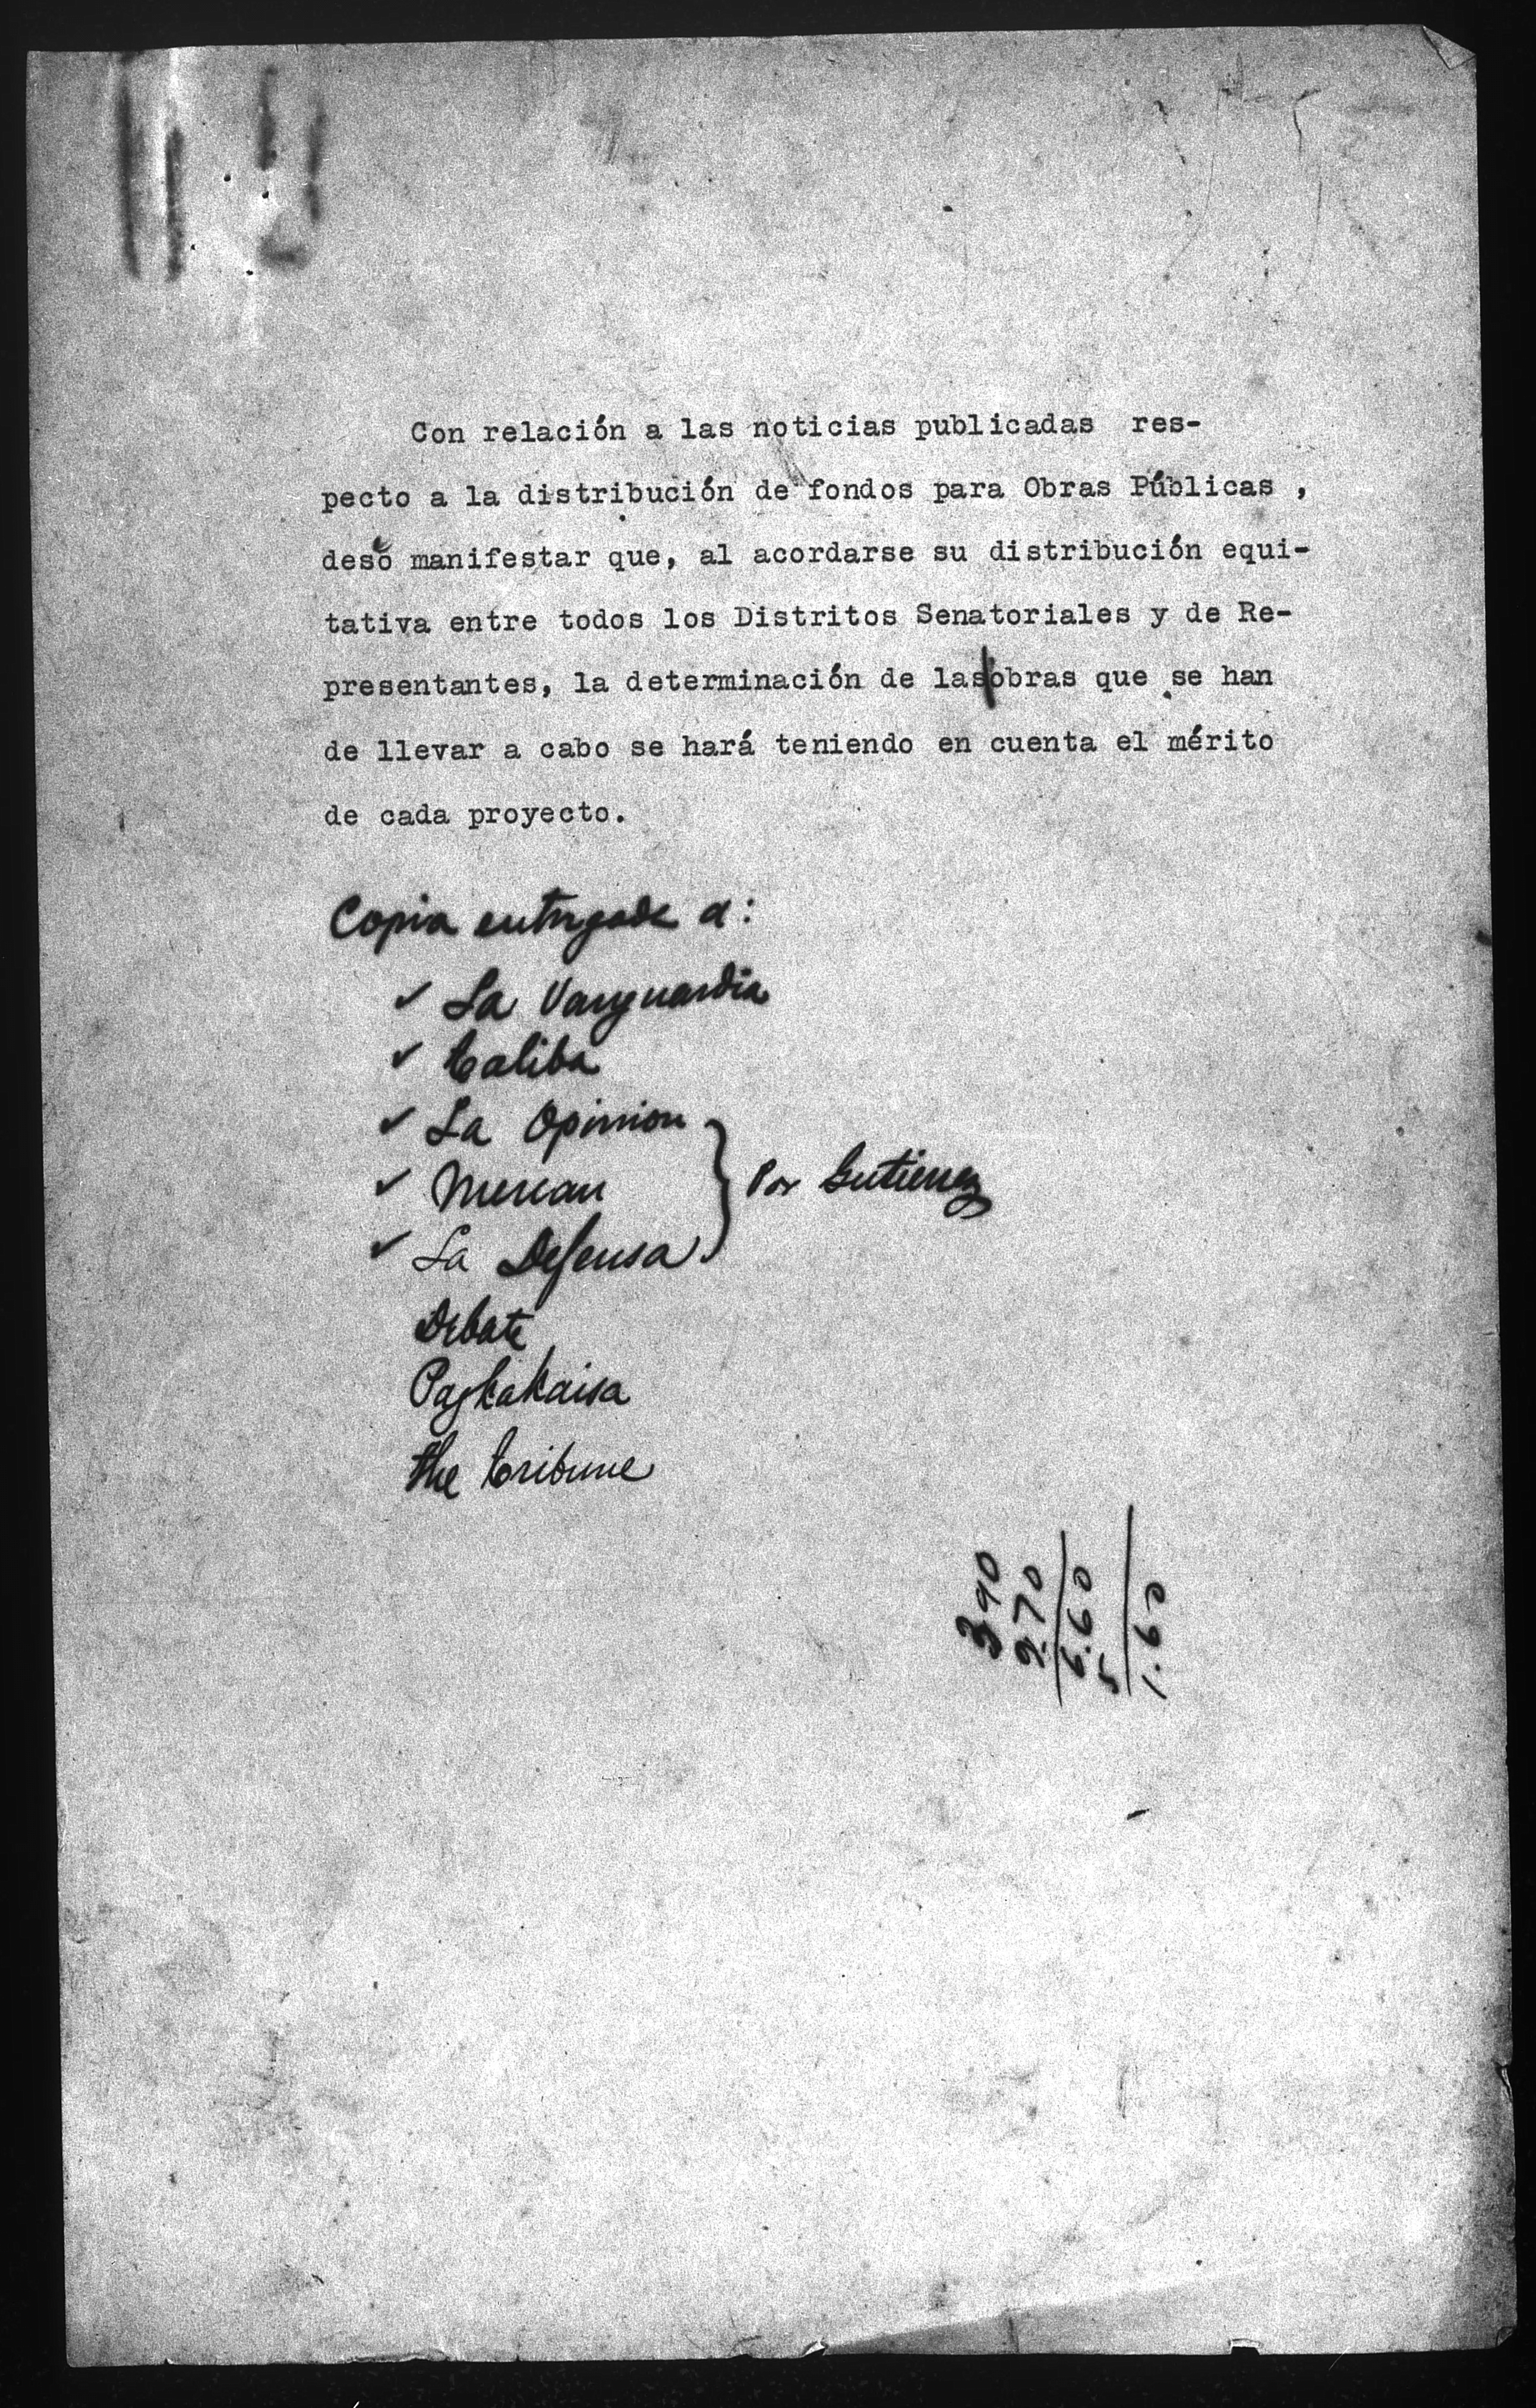 Con relación a las noticias publicadas res-
pecto a la distribución de fondos para Obras Públicas ,
deseo manifestar que, al acordarse su distribución equi-
tativa entre todos los Distritos Senatoriales y de Re-
presentantes, la determinación de las|obras que se han
de llevar a cabo se hará teniendo en cuenta el mérito
de cada proyecto.
Copia entregada a:
✓ La Vanguardia
✓ Taliba
✓ La Opinion
✓ } Por Gutierrez
✓ La Defensa
Debate
Pagkakaisa
the tribune
3 90
2.70
6.60
5
1.60